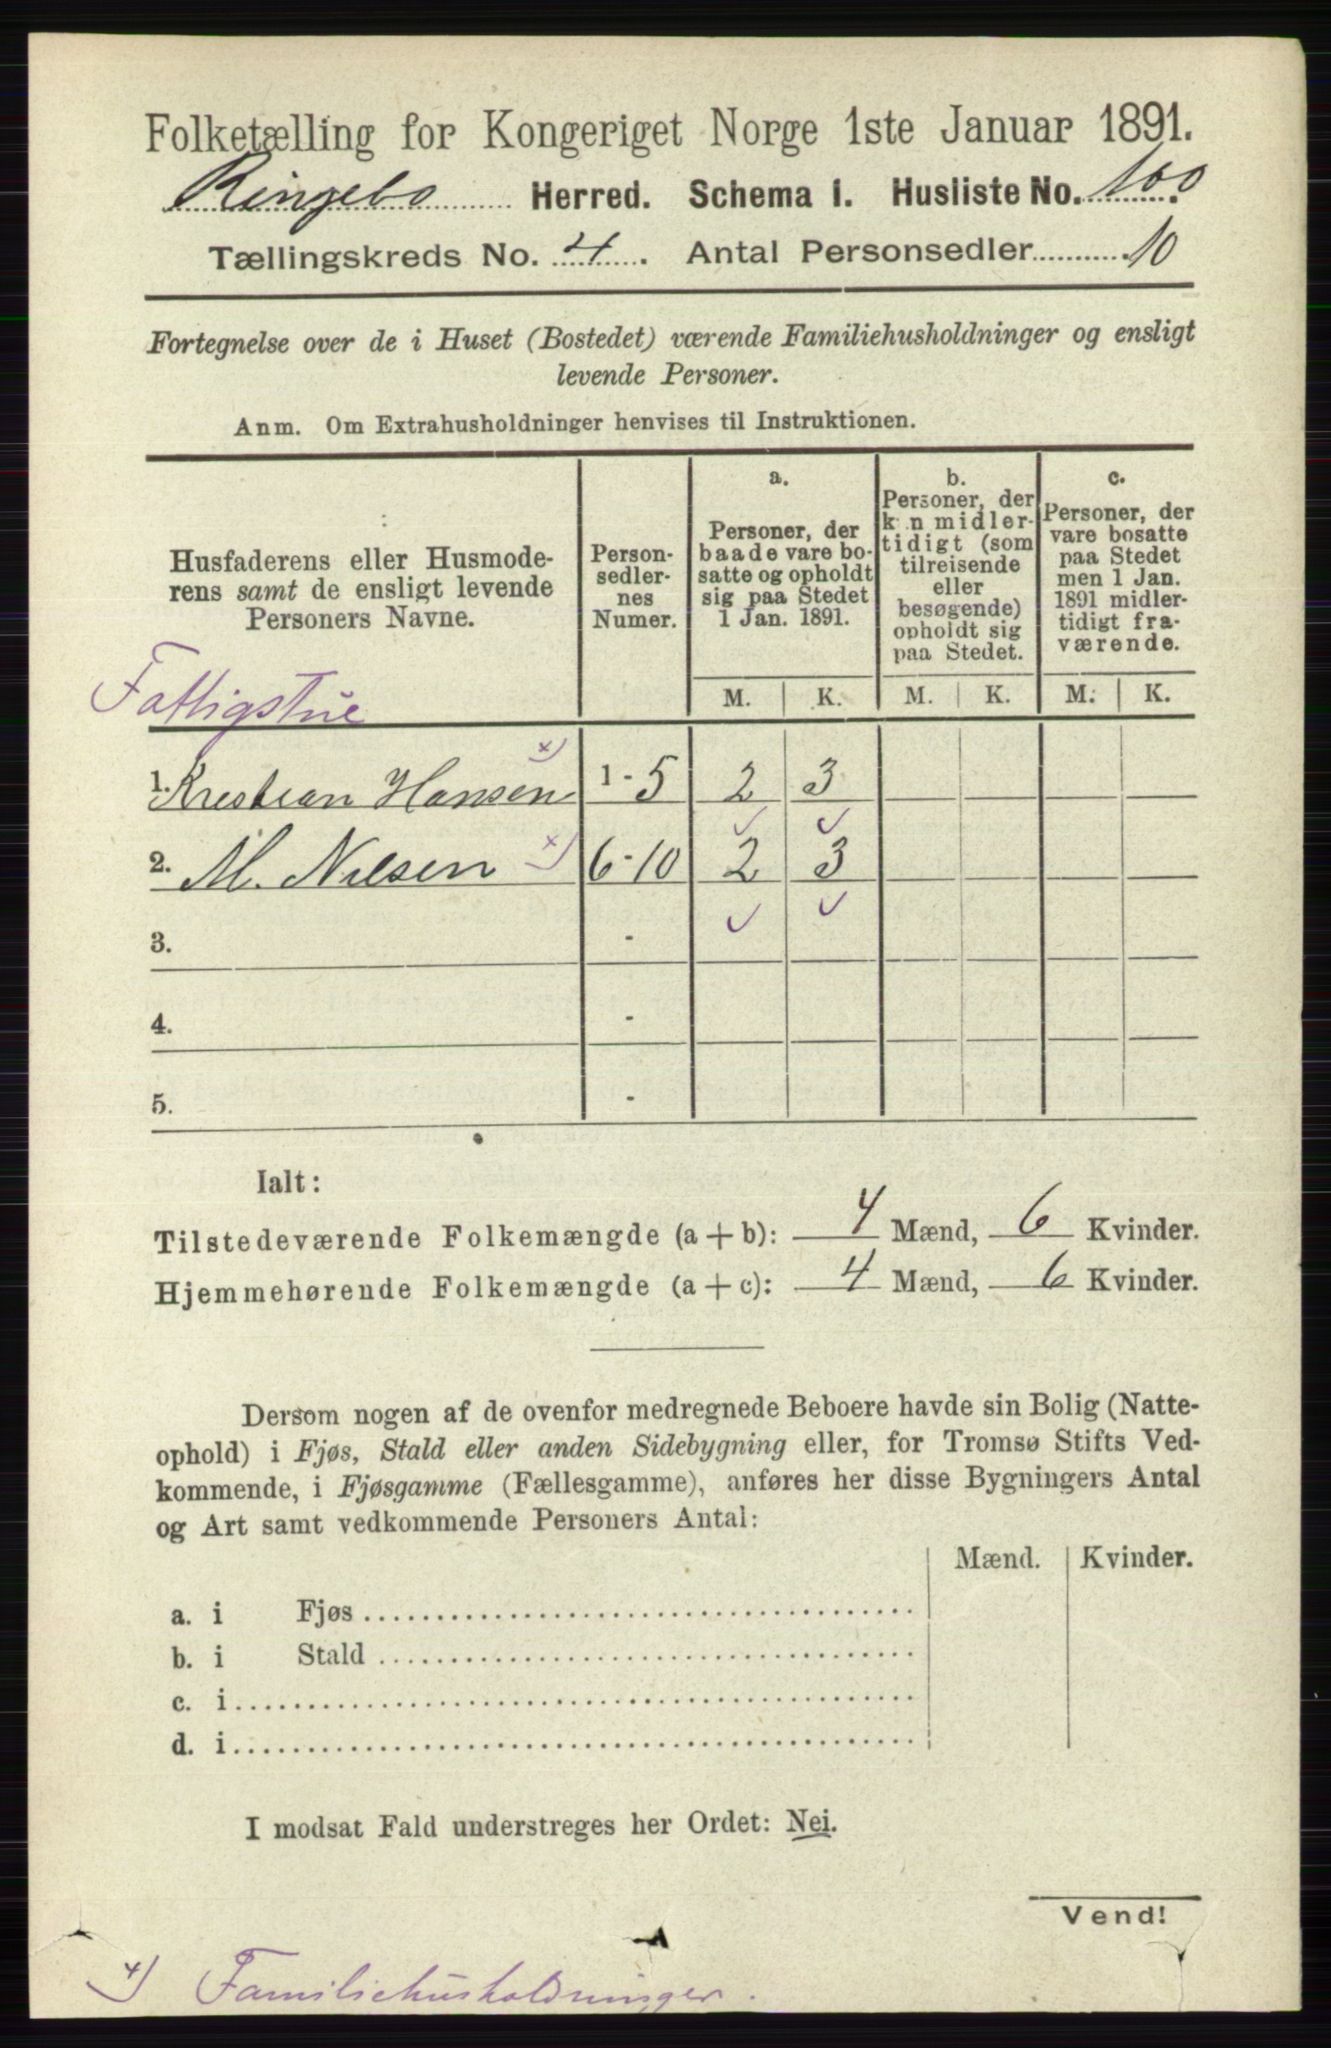 Folketælling for Kongeriget Norge 1ste Januar 1891.
Ringebo Herred. Schema 1. Husliste No. 100.
Tællingskreds No. 4. Antal Personsedler 10
Fortegnelse over de i Huset (Bostedet) værende Familiehusholdninger og ensligt
levende Personer.
Anm. Om Extrahusholdninger henvises til Instruktionen.
Husfaderens eller Husmode-
rens samt de ensligt levende
Personers Navne.
Person-
sedler-
nes
Numer.
a.
Personer, der
baade vare bo-
satte og opholdt
sig paa Stedet
1 Jan. 1891.
b.
Personer, der
kun midler-
tidigt (som
tilreisende
eller
besøgende)
opholdt sig
paa Stedet.
c.
Personer, der
vare bosatte
paa Stedet
men 1 Jan.
1891 midler-
tidigt fra-
værende.
M. K. M. K. M. K.
Fattigstue
1. Krestian Hansen x) 1-5 2 3
2. M. Nilsen x) 6-10 2 3
3. -
4. -
5. -
Ialt:
Tilstedeværende Folkemængde (a + b): 4 Mænd, 6 Kvinder.
Hjemmehørende Folkemængde (a + c): 4 Mænd, 6 Kvinder.
Dersom nogen af de ovenfor medregnede Beboere havde sin Bolig (Natte-
ophold) i Fjøs, Stald eller anden Sidebygning eller, for Tromsø Stifts Ved-
kommende, i Fjøsgamme (Fællesgamme), anføres her disse Bygningers Antal
og Art samt vedkommende Personers Antal:
Mænd. Kvinder.
a. i Fjøs
b. i Stald
c. i
d. i
I modsat Fald understreges her Ordet: Nei.
Vend!
x) Familiehusholdninger.